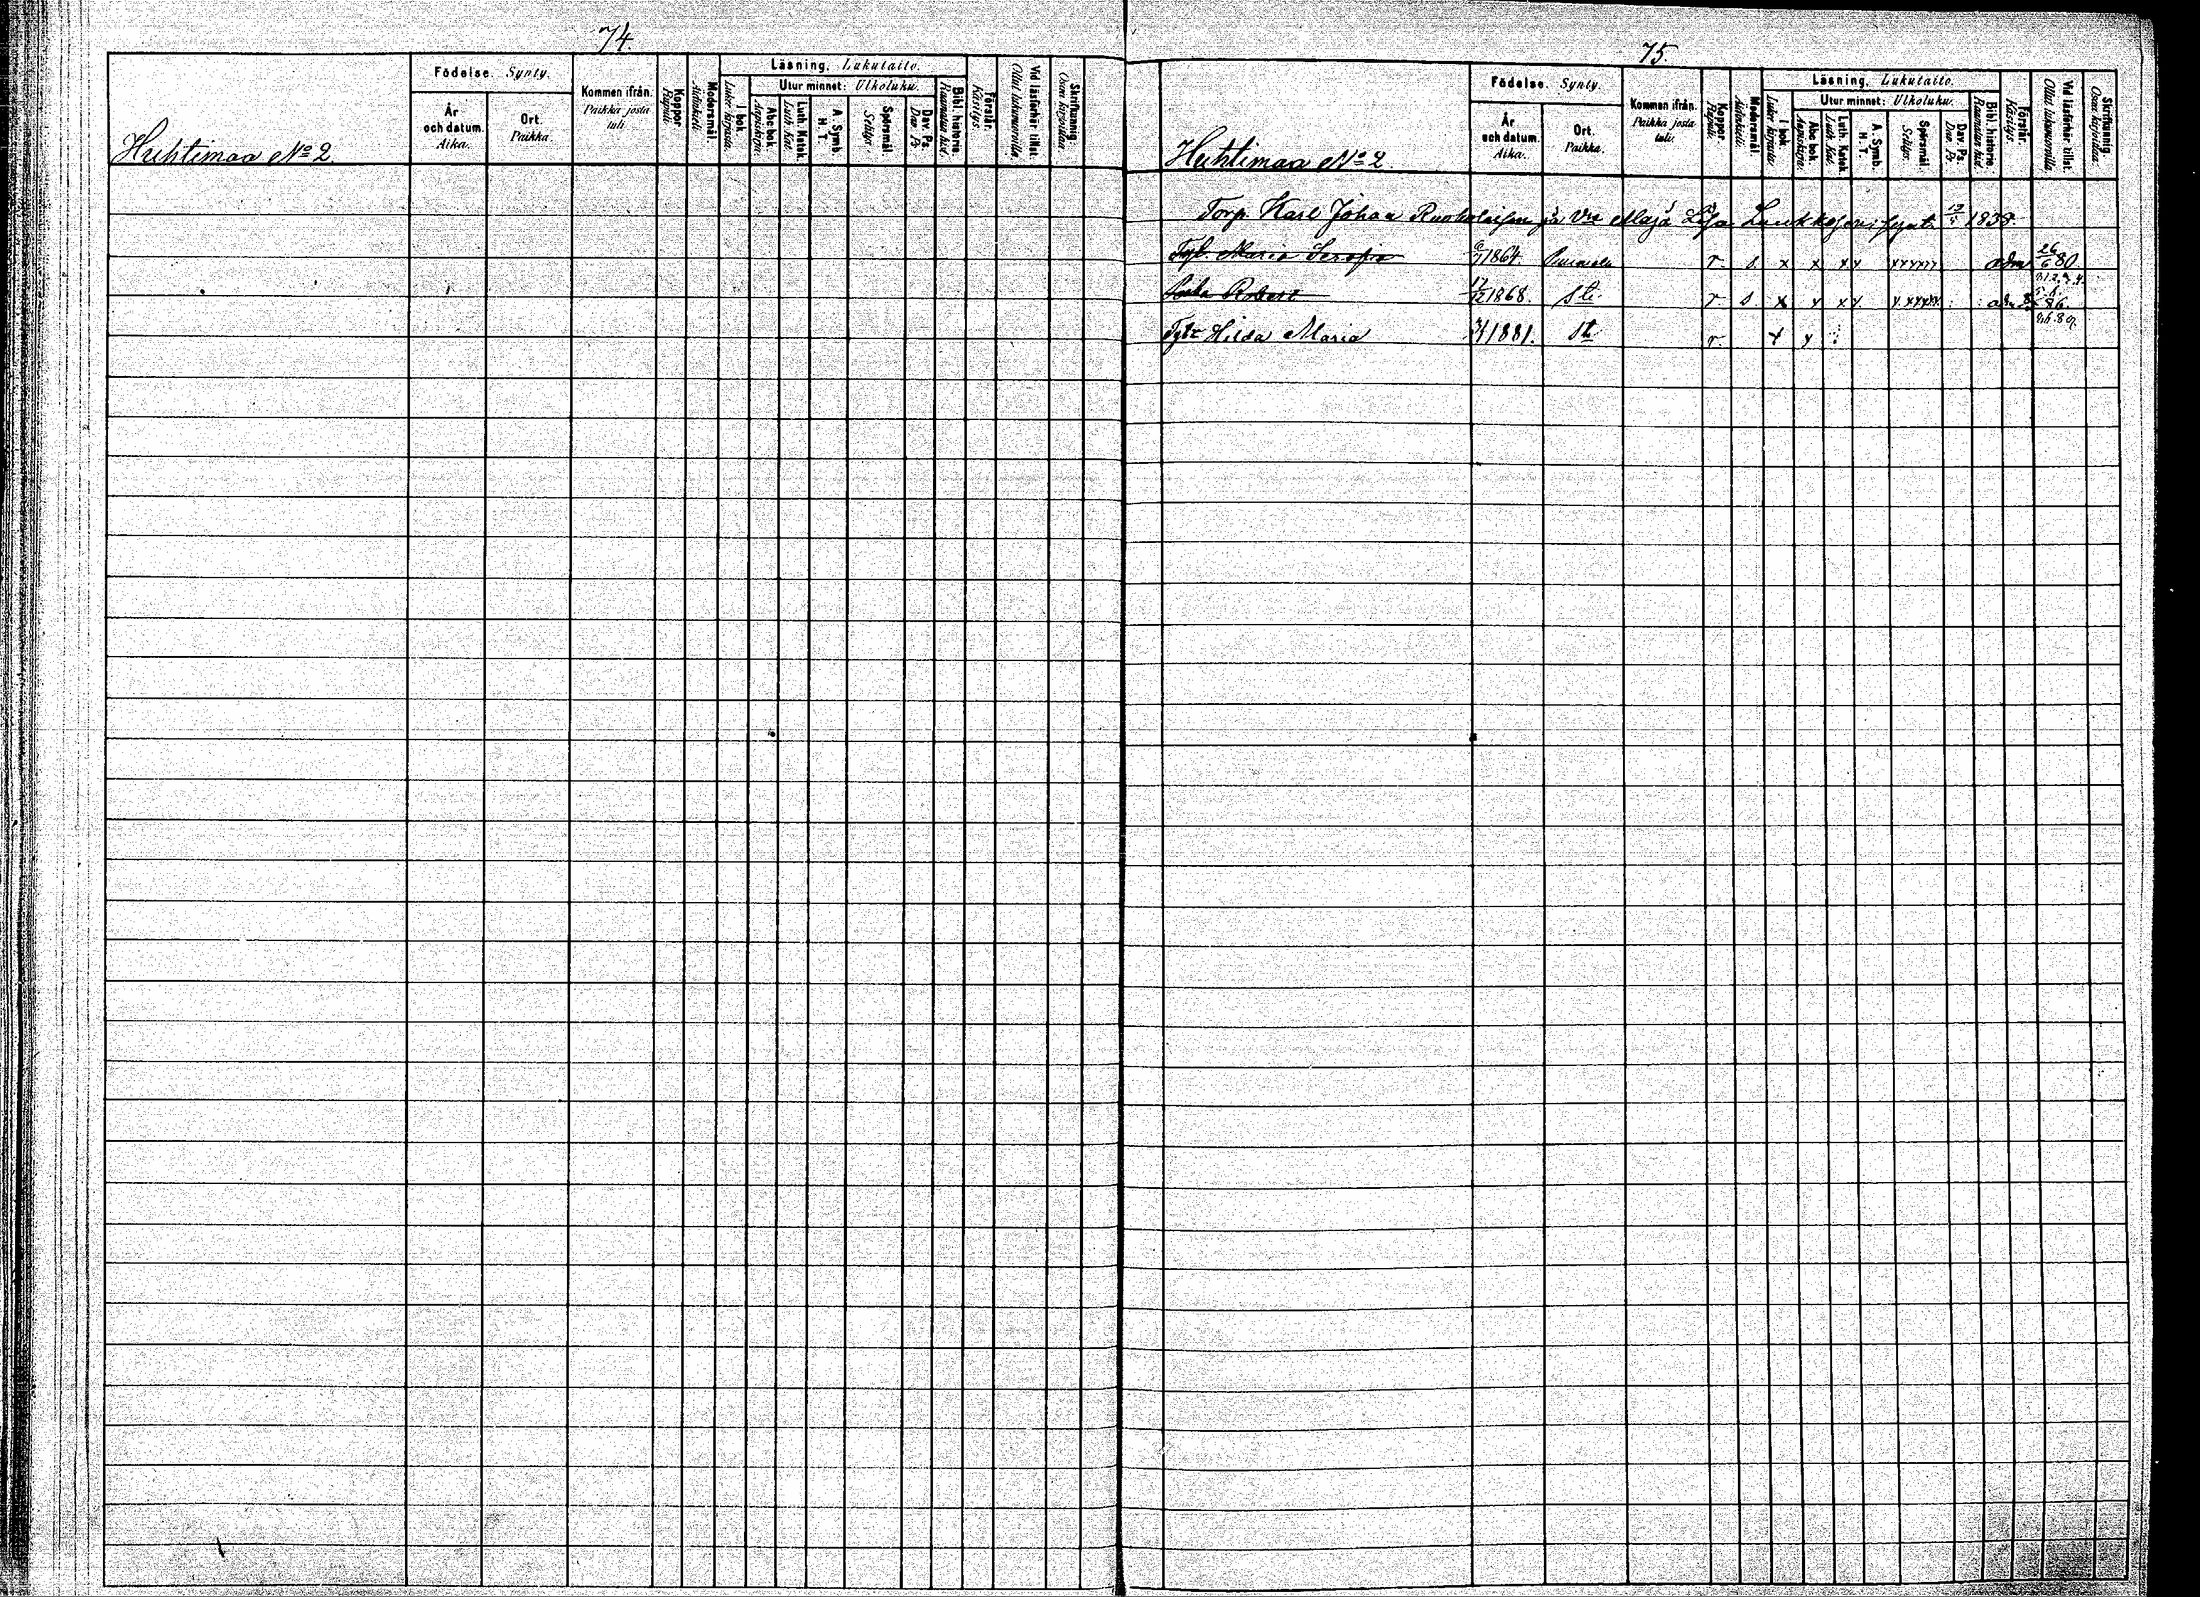 74.
Huhtimaa No 2.
Födelse. Synty.
År och datum. Aika.
Ort. Paikka.
Kommen ifrån. Paikka josta tuli.
Koppor Rupuli
Modersmål. Äidinkieli
Läsning. Lukutaito.
I bok. Lukee kirjasta.
Utur minnet: Ulkoluku.
Abc bok Aapiskirja.
Luth. Katek. Luth. Kat.
A. Symb. H. T.
Spörsmål. Selitys.
Dav. Ps Dav. Ps
Bibl. historia Raamatun hist.
Förstår. Käsitys.
Vid läsförhör tillst. Ollut lukuvuorolla.
Skriftkunnig. Osaa kirjoittaa
75.
Huhtimaa No 2.
Födelse. Synty.
År och datum. Aika.
Ort. Paikka.
Kommen ifrån. Paikka josta tuli.
Koppor. Rupuli.
Modersmål. Äidinkieli.
Läsning. Lukutaito.
I bok. Lukee kirjasta.
Utur minnet: Ulkoluku.
Abc bok Aapiskirja.
Luth. Katek. Luth. Kat.
A. Symb. H. T.
Spörsmål. Selitys.
Dav. Ps Dav. Ps
Bibl. historia Raamatun hist.
Förstår. Käsitys.
Vid läsförhör tillst. Ollut lukuvuorolla.
Skriftkunnig. Osaa kirjoittaa.
Torp. Karl Johan ja Maja Lisa 1838
Maria Serafia 1864 r. s. x x x x xxxxxx adm 26/6 80
Robert 1868. r s x x x x x xxxxx adm 86.
Tytr Hilda Maria 1881. r x x